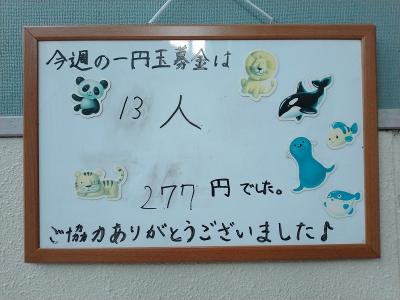 今週の一円玉募金は
13人
277円でした。
ご協力ありがとうございました♪